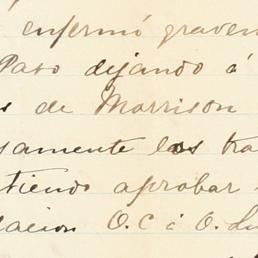 enfermó graven
Paso dejando á
s de Morrison
samente los tra
tiendo aprobar
lacion O. C á O. Lu